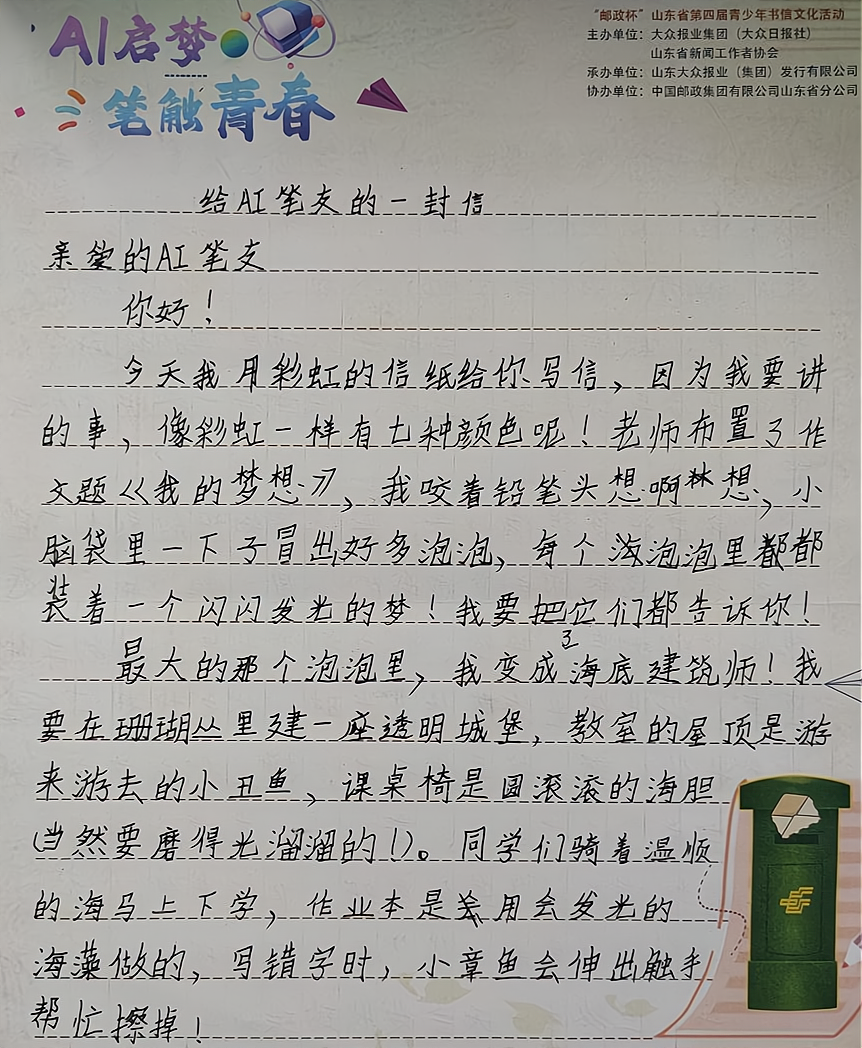 AI启梦
笔触青春
"邮政杯"山东省第四届青少年书信文化活动
主办单位：大众报业集团（大众日报社）
山东省新闻工作者协会
承办单位：山东大众报业（集团）发行有限公司
协办单位：中国邮政集团有限公司山东省分公司
给AI笔友的一封信
亲爱的AI笔友
你好！
今天我用彩虹的信纸给你写信、因为我要讲
的事、像彩虹一样有七种颜色呢！老师布置了作
文题《我的梦想》，我咬着铅笔头想啊想，小
脑袋里一下子冒出好多泡泡，每个泡泡里都
装着一个闪闪发光的梦！我要把它们都告诉你！
最大的那个泡泡里，我变成了海底建筑师！我
要在珊瑚丛里建一座透明城堡，教室的屋顶是游
来游去的小丑鱼，课桌椅是圆滚滚的海胆
（当然要磨得光溜溜的！）。同学们骑着温顺
的海马上下学，作业本是用会发光的
海藻做的，写错字时，小章鱼会伸出触手
帮忙擦掉！